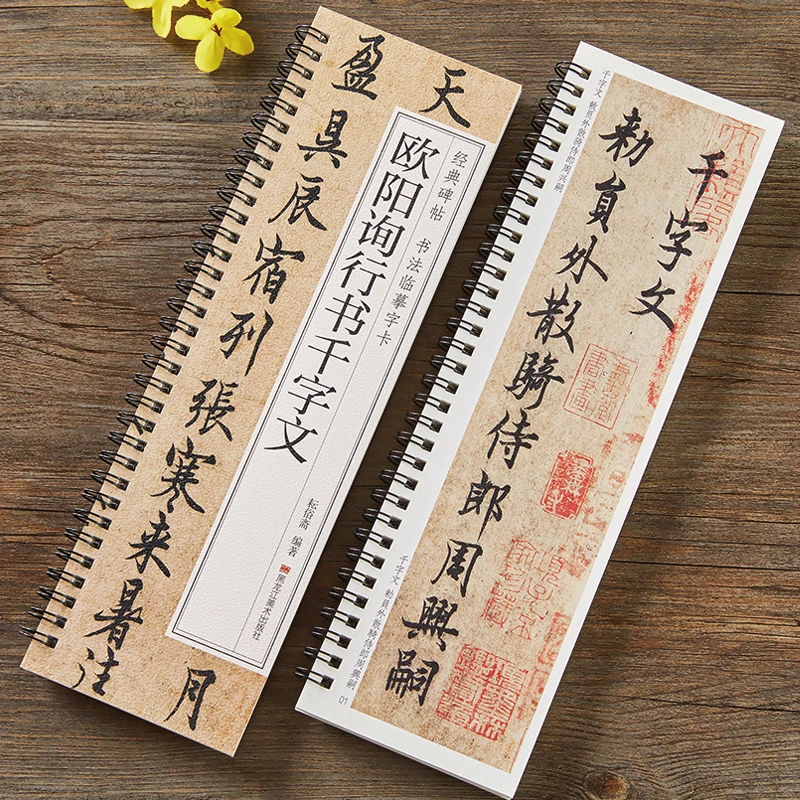 天
月
盈昃辰宿列張寒来暑往
经典碑帖 书法临摹字卡
欧阳询行书千字文
耘俗斋 编著
黑龙江美术出版社
千字文
勅員外散騎侍郎周興嗣
千字文 敕員外散骑侍郎周兴嗣
千字文 勅員外散騎侍郎周興嗣
01